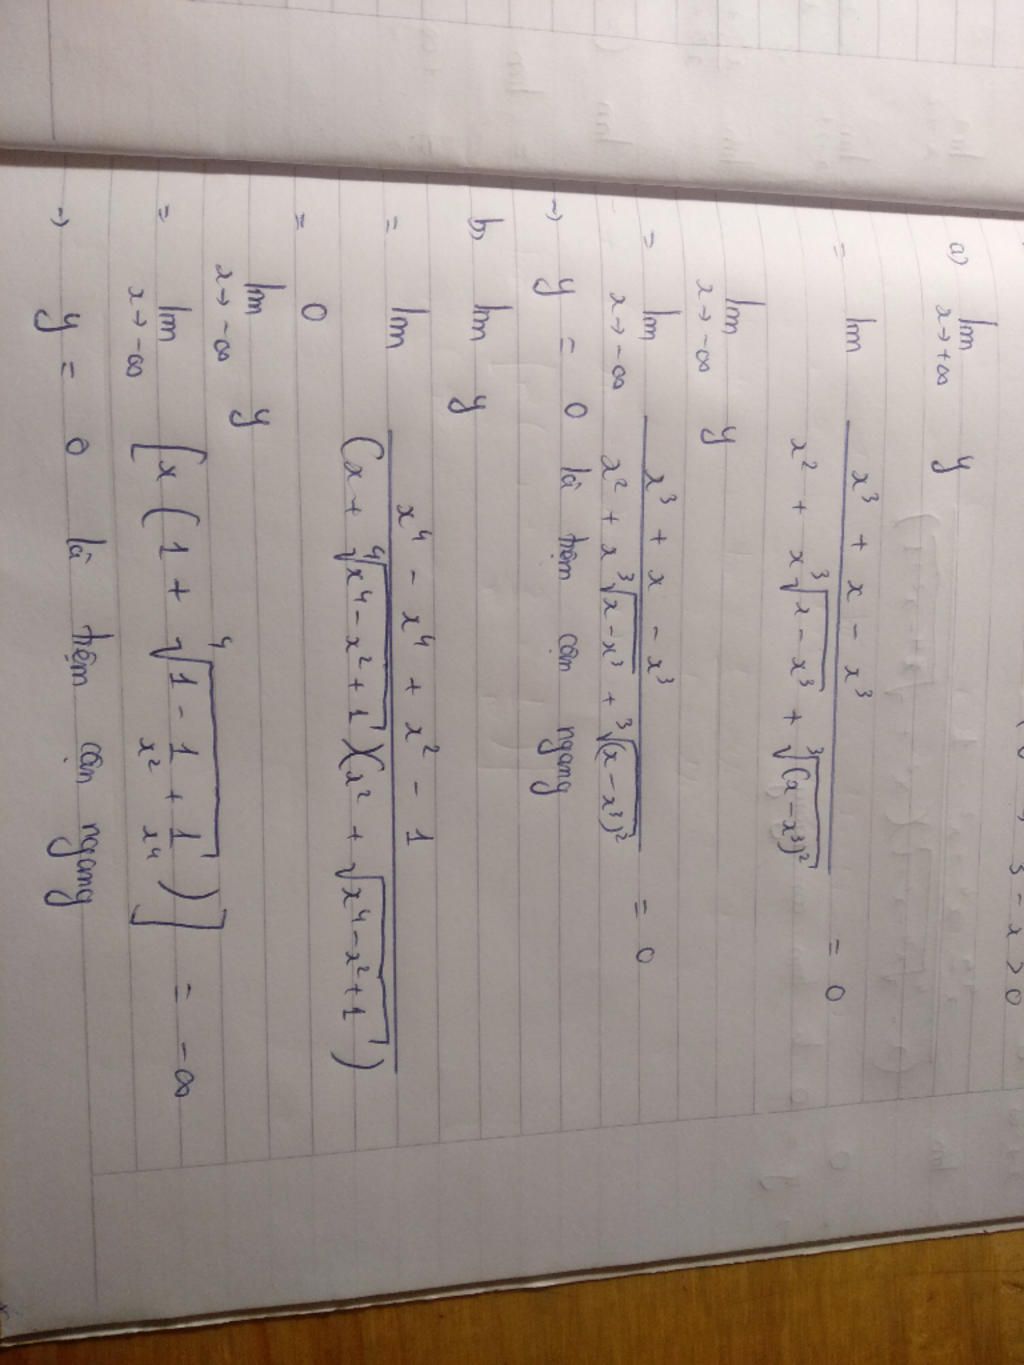 3 - x > 0
a) lim y
x → +∞
= lim (x³ + x - x³) / (x² + x ∛(x - x³) + ∛((x - x³)²)) = 0
lim y
x → -∞
= lim (x³ + x - x³) / (x² + x ∛(x - x³) + ∛((x - x³)²)) = 0
x → -∞
→ y = 0 là tiệm cận ngang
b) lim y
= lim (x⁴ - x⁴ + x² - 1) / ((x + ∜(x⁴ - x² + 1))(x² + √(x⁴ - x² + 1)))
= 0
lim y
x → -∞
= lim [x (1 + ∜(1 - 1/x² + 1/x⁴))] = -∞
x → -∞
→ y = 0 là tiệm cận ngang